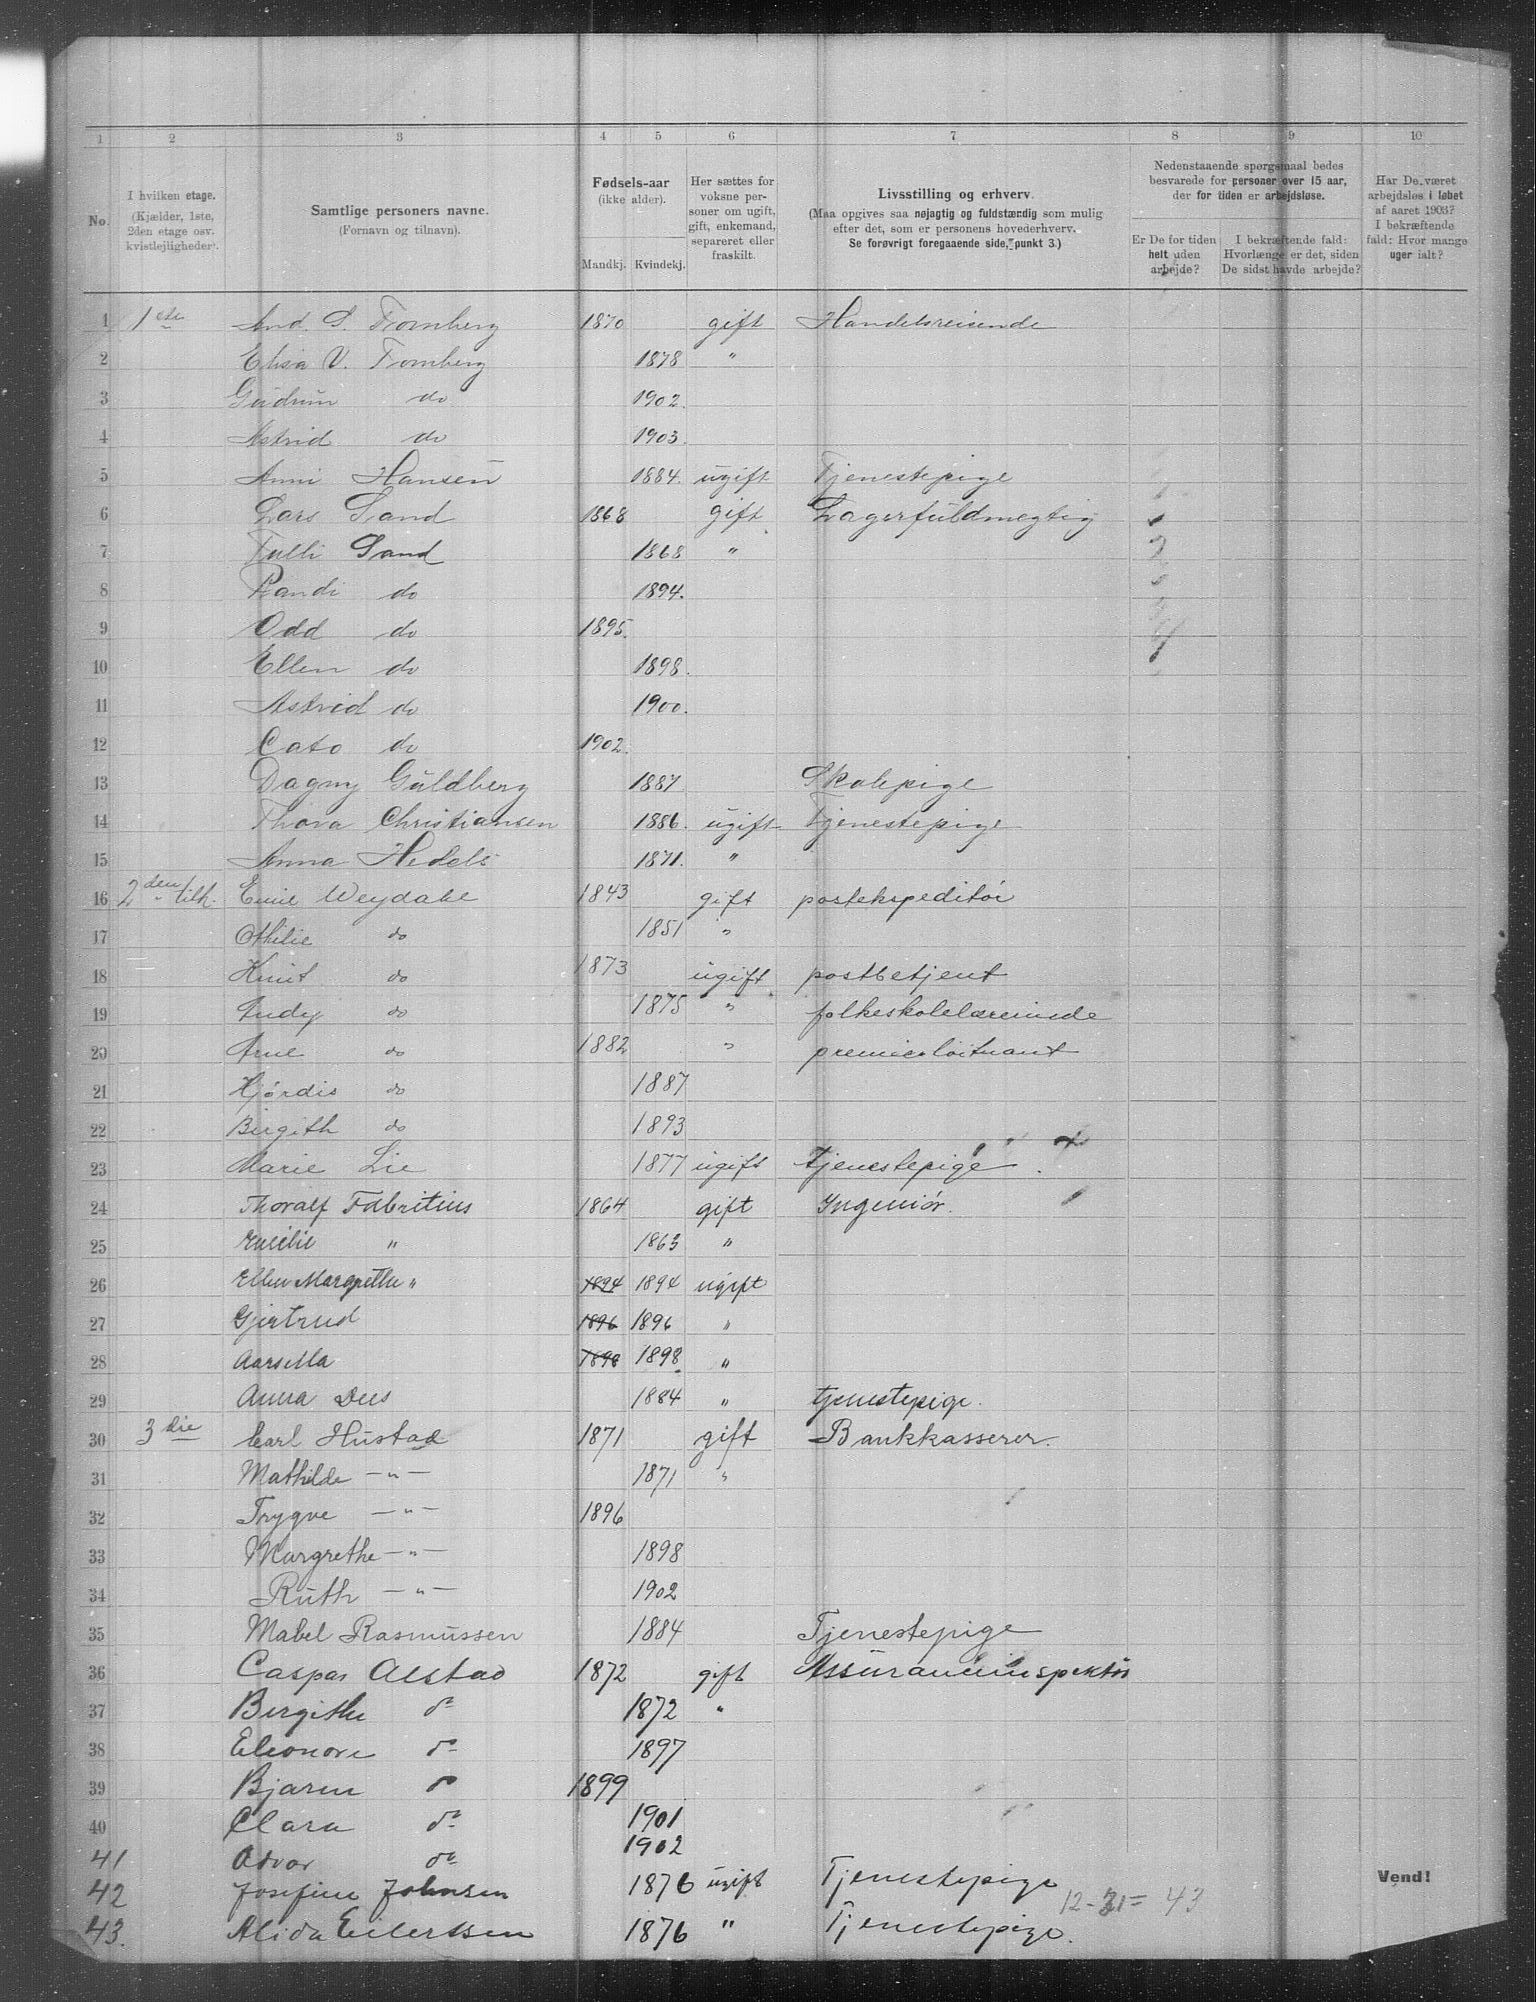 1 2 3 4 5 6 7 8 9 10
No.
I hvilken etage. (Kjælder, 1ste, 2den etage osv. kvistlejligheder).
Samtlige personers navne. (Fornavn og tilnavn).
Fødsels-aar (ikke alder).
Mandkj. Kvindekj.
Her sættes for voksne personer om ugift, gift, enkemand, separeret eller fraskilt.
Livsstilling og erhverv. (Maa opgives saa nøjagtig og fuldstændig som mulig efter det, som er personens hovederhverv. Se forøvrigt foregaaende side, punkt 3.)
Nedenstaaende spørgsmaal bedes besvarede for personer over 15 aar, der for tiden er arbejdsløse.
Er De for tiden helt uden arbejde?
I bekræftende fald: Hvorlænge er det, siden De sidst havde arbejde?
Har De været arbejdsløs i løbet af aaret 1903? I bekræftende fald: Hvor mange uger ialt?
1 1ste And. S. Fornberg 1870 gift Handelsreisende
2 Elisa V. Fornberg 1878 "
3 Gudrun do 1902.
4 Astrid do 1903.
5 Anni Hansen 1884. ugift Tjenestepige
6 Lars Sand 1868 gift Lagerfuldmegtig
7 Tulli Sand 1868 "
8 Randi do 1894.
9 Odd do 1895.
10 Ellen do 1898.
11 Astrid do 1900.
12 Cato do 1902.
13 Dagny Guldberg 1887 Skolepige
14 Thora Christiansen 1886. ugift Tjenestepige
15 Anna Hedels 1871. "
16 2den tilh. Emil Weydahl 1843 gift postekspeditør
17 Othilie do 1851 "
18 Knut do 1873 ugift postbetjent
19 do 1875 " folkeskolelærerinde
20 Arne do 1882 " premierløitnant
21 Hjørdis do 1887
22 Birgith do 1893
23 Marie Lie 1877 ugift tjenestepige.
24 Thoralf Fabritius 1864 gift Ingeniør.
25 Emilie " 1863 "
26 Ellen Margrethe " 1894 1894 ugift
27 Gjertrud 1896 1896 "
28 Aarsilla 1898 1898 "
29 Anna Dees 1884 " tjenestepige.
30 3die Carl Hustad 1871 gift Bankkasserer.
31 Mathilde —"— 1871 "
32 Trygve —"— 1896
33 Margrethe —"— 1898
34 Ruth —"— 1902
35 Mabel Rasmussen 1884 Tjenestepige
36 Caspar Alstad 1872 gift Assuranceinspektør
37 Birgithe do 1872 "
38 Eleonore do 1897
39 Bjarne do 1899
40 Clara do 1901
41 Advor do 1902
Vend!
42 Josefine Johnsen 1876 ugift Tjenestepige
12-31= 43
43. Alida Eilertssen 1876 " Tjenestepige.